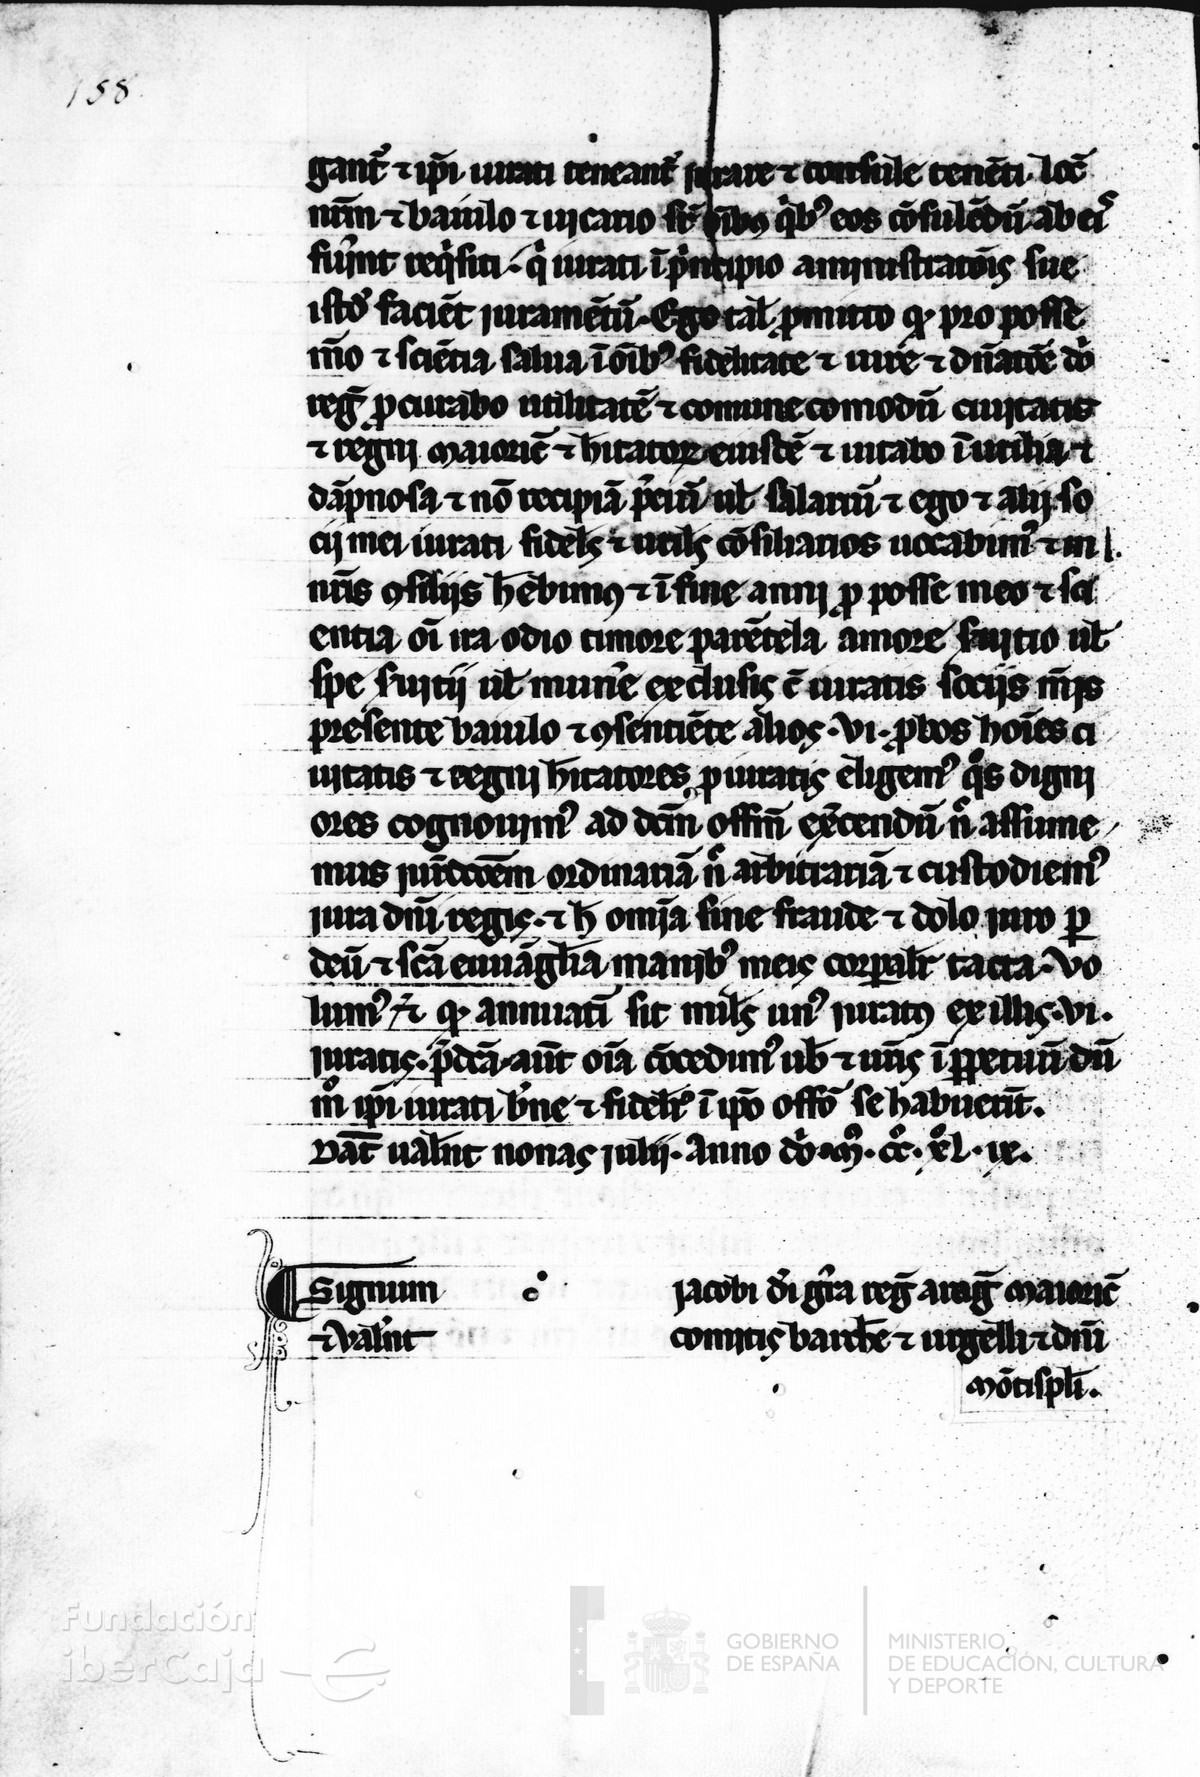 158
gant᷑ ⁊ ip̄i iurati teneant᷑ iurare ⁊ consule tenēti loc̄
nr̄m ⁊ baiulo ⁊ uicario sr̄ oībus q̇b᷒ eos cōsulēdū ab ei᷒
fu᷑int req̇siti. q̇ iurati ī ṗncipio aministratōis sue
istō faciēt iuramētū. Ego tal̄ ꝓmitto ꝙ pro posse
mō ⁊ sciētia salua ī oīb᷒ fidelitate ⁊ iure ⁊ dn̄atōe dn̄i
reḡ ꝓcurabo utilitatē ⁊ comune comodū ciuitatis
⁊ regni maioric̄ ⁊ h̄itatoꝝ eiusdē ⁊ uitabo īutilia ⁊
dāpnosa ⁊ nō recipiā p̄ciū ul̄ salariū ⁊ ego ⁊ alij so
cij mei iurati fidel̄s ⁊ util̄s cōsiliarios uocabim᷒ ⁊ in
nr̄is ꝯsilijs h̄ebimus ⁊ ī fine anni ꝓ posse meo ⁊ sci
entia oī ira odio timore parētela amore s̄uitio ul̄
spe s̄uitii ul̄ mun᷑e exclusis c̄ iuratis socijs m̄is
presente baiulo ⁊ ꝯsentiēte alios .vi. ꝓbos hoīes ci
uitatis ⁊ regni h̄itatores ꝓ iuratis eligem᷒ q̊s digni
ores cognouim᷒ ad dcm̄ offm̄ ex᷑cendū n̄ assume
mus iur̄dccōem ordinariā n̄ arbitrariā ⁊ custodiem᷒
iura dn̄i regis. ⁊ h̄ omīa sine fraude ⁊ dolo iuro ꝑ
deū ⁊ scā euuāgl̄ia manib᷒ meis corꝑalit᷑ tacta. Vo
lum᷒ ⁊ ꝙ annuatī sit mil̄s un᷒ iuratus ex illis .vi.
iuratis. p̄dcā aut̄ oīa cōcedim᷒ ub̄ ⁊ ur̄is īꝑpetuū dū
m̊ ip̄i iurati bn̄e ⁊ fidelit᷑ ī ip̄o offō se habuerīt.
Dat̄ ualn̄t nonas iulij. Anno dn̄i .m̊. cc̊. xl̊. ix.
Signum
⁊ Valn̄t
Jacobi dī gr̄a reḡ araḡ maioric̄
comitis barch̄e ⁊ urgelli ⁊ dn̄i
mōtispl̄i.
Fundación
iberCaja
GOBIERNO
DE ESPAÑA
MINISTERIO
DE EDUCACIÓN, CULTURA
Y DEPORTE